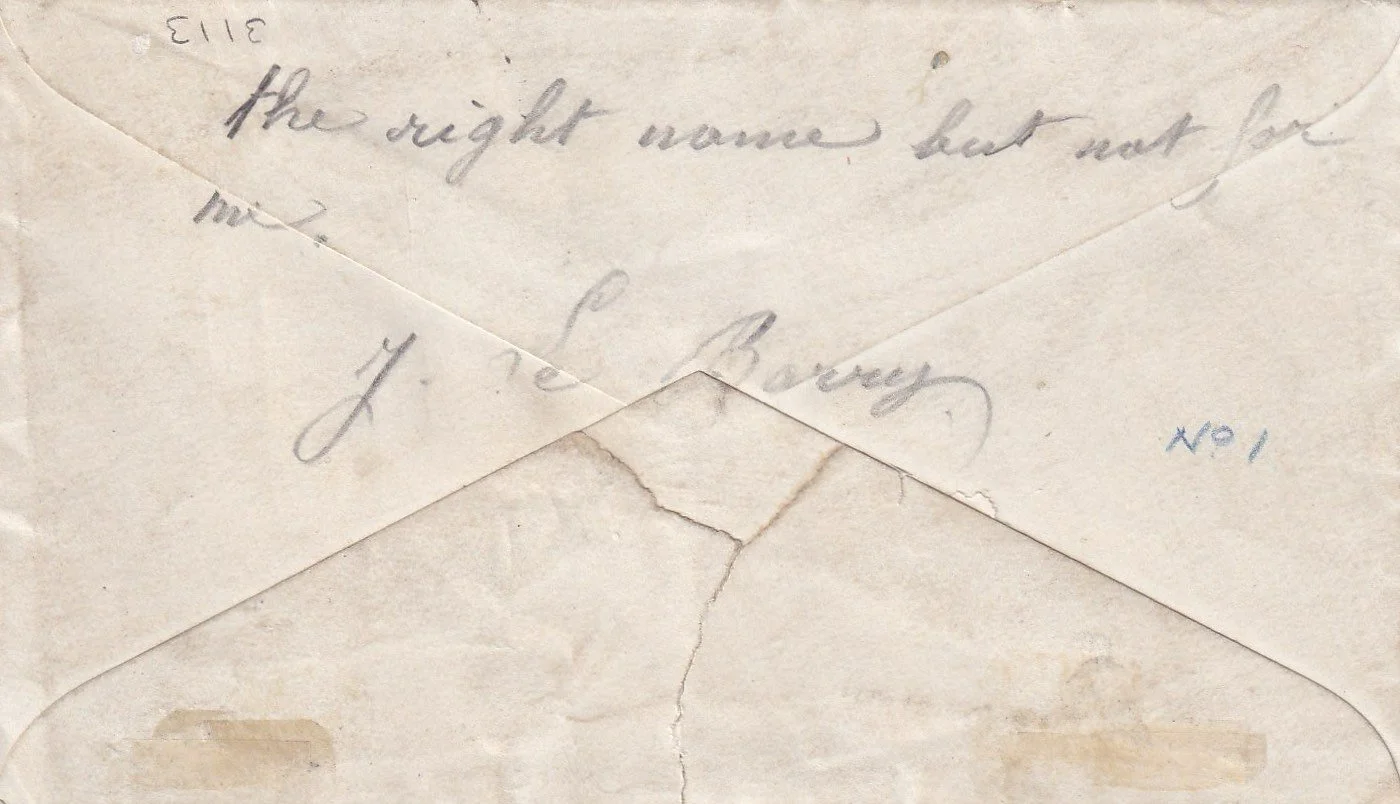 3113
the right name but not for
me.
J. Le Barry.
No 1